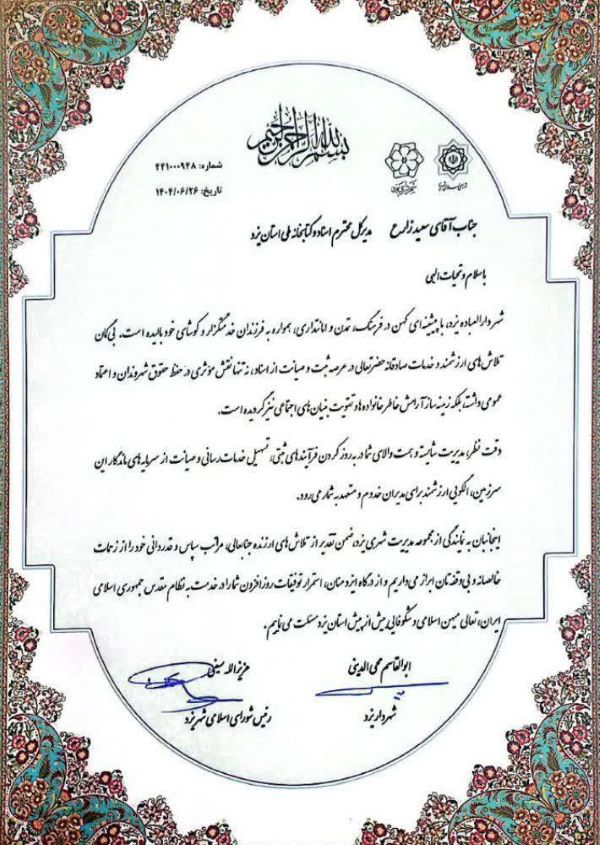 بسم الله الرحمن الرحیم
شماره: ۴۴۱۰۰۰۹۴۸
تاریخ: ۱۴۰۴/۰۶/۲۶
جناب آقای سعید زارع مدیرکل محترم اسناد و کتابخانه ملی استان یزد
با سلام و تحیات الهی
شهر دارالعباده یزد، با پیشینه‌ای کهن در فرهنگ، تمدن و امانتداری، همواره به فرزندان خدمتگزار و کوشای خود بالیده است. بی‌گمان
تلاش‌های ارزشمند و خدمات صادقانه حضرتعالی در عرصه ثبت و صیانت از اسناد، نه تنها نقش مؤثری در حفظ حقوق شهروندان و اعتماد
عمومی داشته، بلکه زمینه ساز آرامش خاطر خانواده‌ها و تقویت بنیان‌های اجتماعی نیز گردیده است.
دقت نظر، مدیریت شایسته و همت والای شما در به روز کردن فرآیندهای ثبتی، تسهیل خدمات رسانی و صیانت از سرمایه‌های ماندگار این
سرزمین، الگویی ارزشمند برای مدیران خدوم و متعهد به شمار می‌رود.
اینجانبان به نمایندگی از مجموعه مدیریت شهری یزد، ضمن تقدیر از تلاش‌های ارزنده جنابعالی، مراتب سپاس و قدردانی خود را از زحمات
خالصانه و بی‌وقفه‌تان ابراز می‌داریم و از درگاه ایزد منان، استمرار توفیقات روزافزون شما را در خدمت به نظام مقدس جمهوری اسلامی
ایران، تعالی میهن اسلامی و شکوفایی بیش از پیش استان یزد مسئلت می‌نماییم.
ابوالقاسم محی الدینی
شهردار یزد
عزیزالله سیفی
رئیس شورای اسلامی شهر یزد